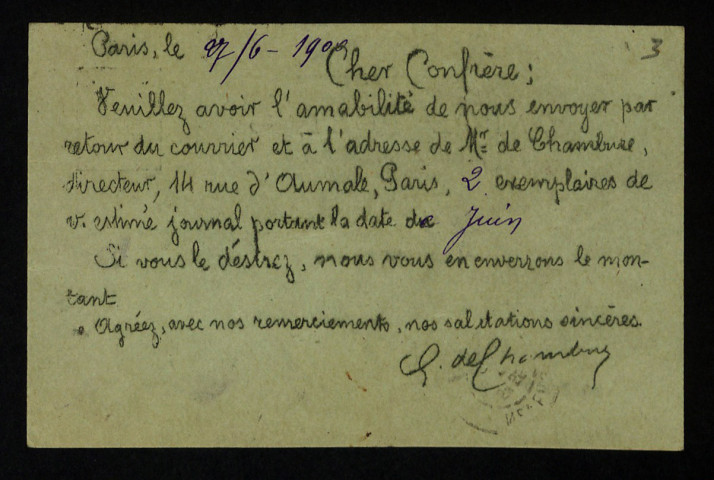 3
Paris, le 27/6 - 190
Cher Confrère;
Veuillez avoir l'amabilité de nous envoyer par
retour du courrier et à l'adresse de Mr. de Chambure,
directeur, 14 rue d'Aumale, Paris, 2 exemplaires de
v. estimé journal portant la date de Juin
Si vous le désirez, nous vous en enverrons le mon-
tant
Agréez, avec nos remerciements, nos salutations sincères.
G. de Chambure